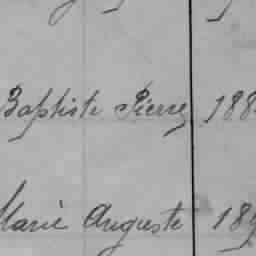 Baptiste Pierre 188
Marie Auguste 189